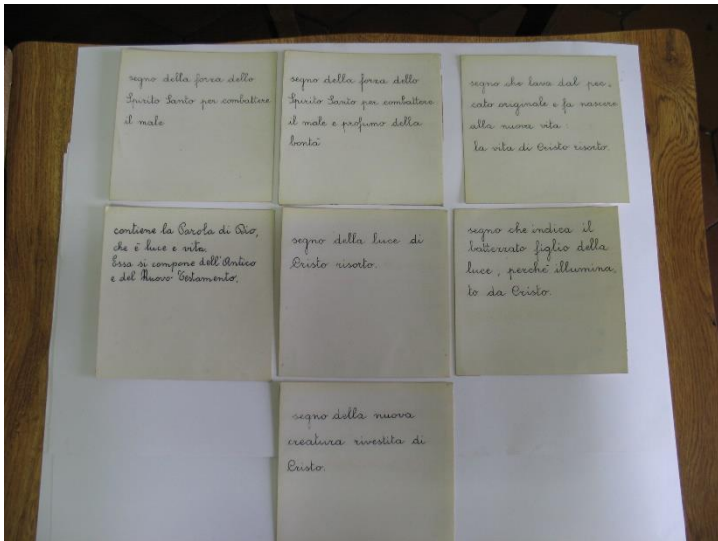 segno della forza dello
Spirito Santo per combattere
il male
segno della forza dello
Spirito Santo per combattere
il male e profumo della
bontà
segno che lava dal pec,
cato originale e fa nascere
alla nuova vita
la vita di Cristo risorto.
contiene la Parola di Dio,
che è luce e vita.
Essa si compone dell'Antico
e del Nuovo Testamento,
segno della luce di
Cristo risorto.
segno che indica il
battezzato figlio della
luce, perchè illumina,
to da Cristo.
segno della nuova
creatura rivestita di
Cristo.